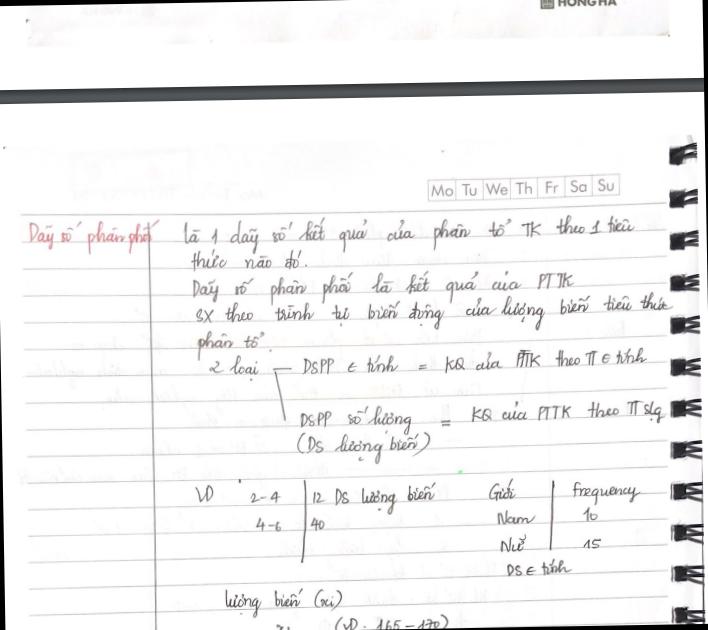 HONG HA
Mo Tu We Th Fr Sa Su
Dãy số phân phối là 1 dãy số kết quả của phân tổ TK theo 1 tiêu
thức nào đó.
Dãy số phân phối là kết quả của PTTK
SX theo trình tự biến động của lượng biến tiêu thức
phân tổ.
2 loại — DSPP ∈ tính = KQ của PTTK theo TT ∈ tính
DSPP số lượng = KQ của PTTK theo TT slg
(DS lượng biến)
VD 2-4 12 DS lượng biến Giới frequency
4-6 40 Nam 10
Nữ 15
DS ∈ tính
lượng biến (xi)
(VD: 165-170)